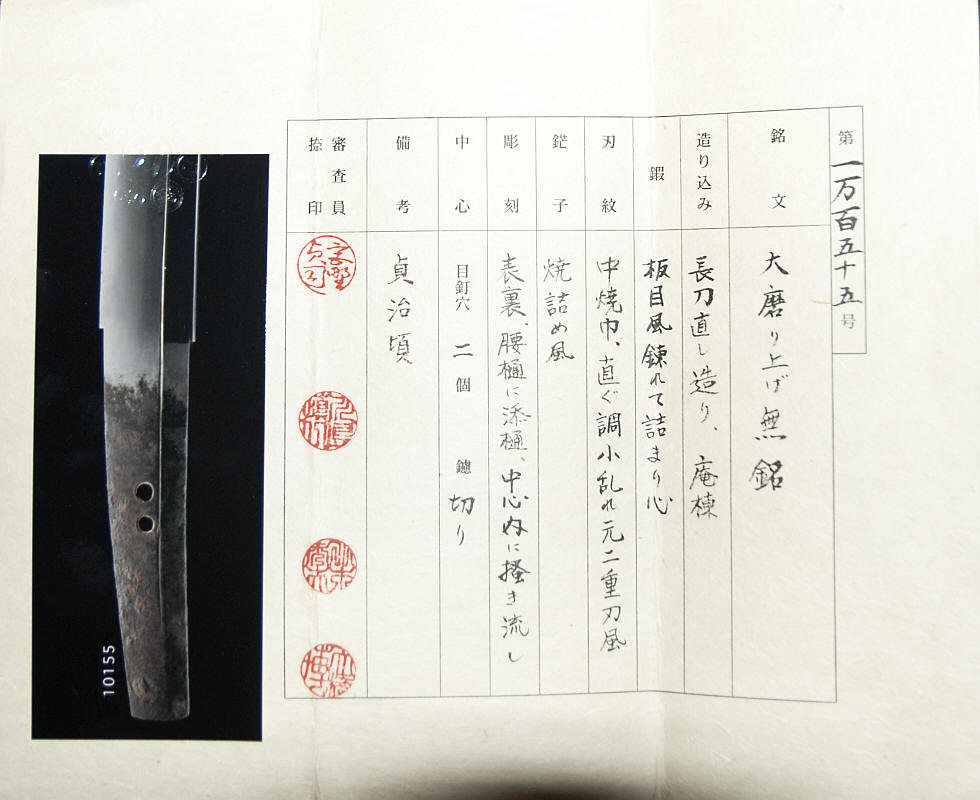 第一万百五十五号
銘文
大磨り上げ無銘
造り込み
長刀直し造り、庵棟
鍜
板目風錬れて詰まり心
刃紋
中焼巾、直ぐ調小乱れ元二重刃風
鋩子
焼詰め風
彫刻
表裏、腰樋に添樋、中心内に掻き流し
中心
目釘穴 二個 鑢 切り
備考
貞治頃
審査員
捺印
10155